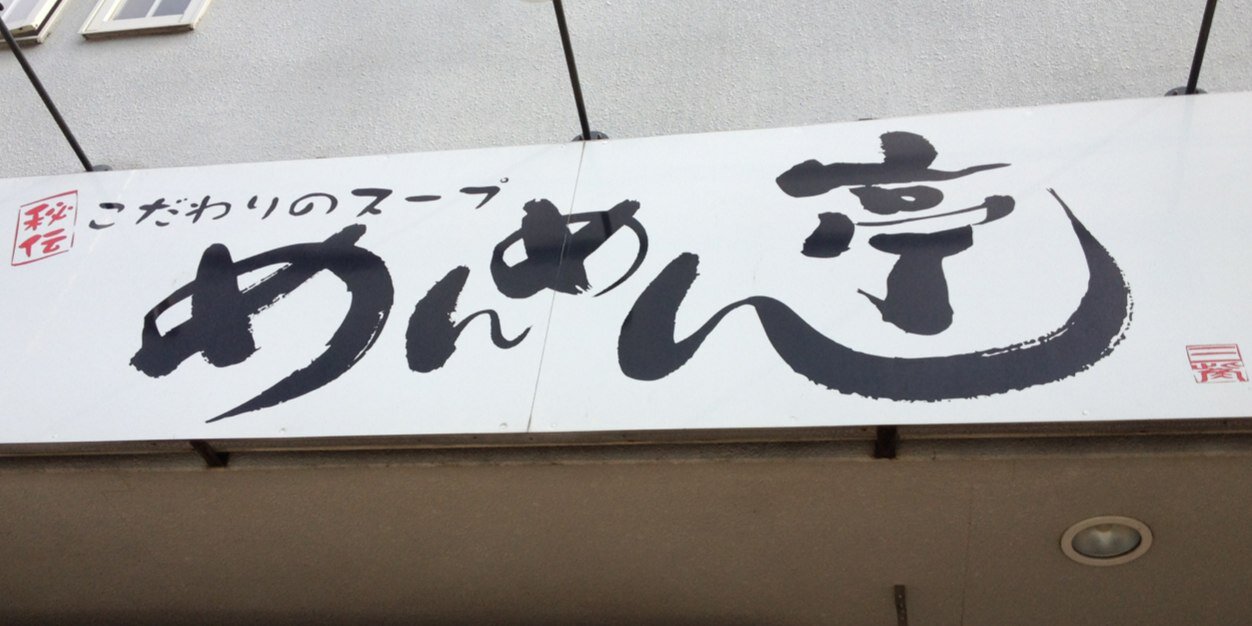 秘伝
こだわりのスープ
めんめん亭